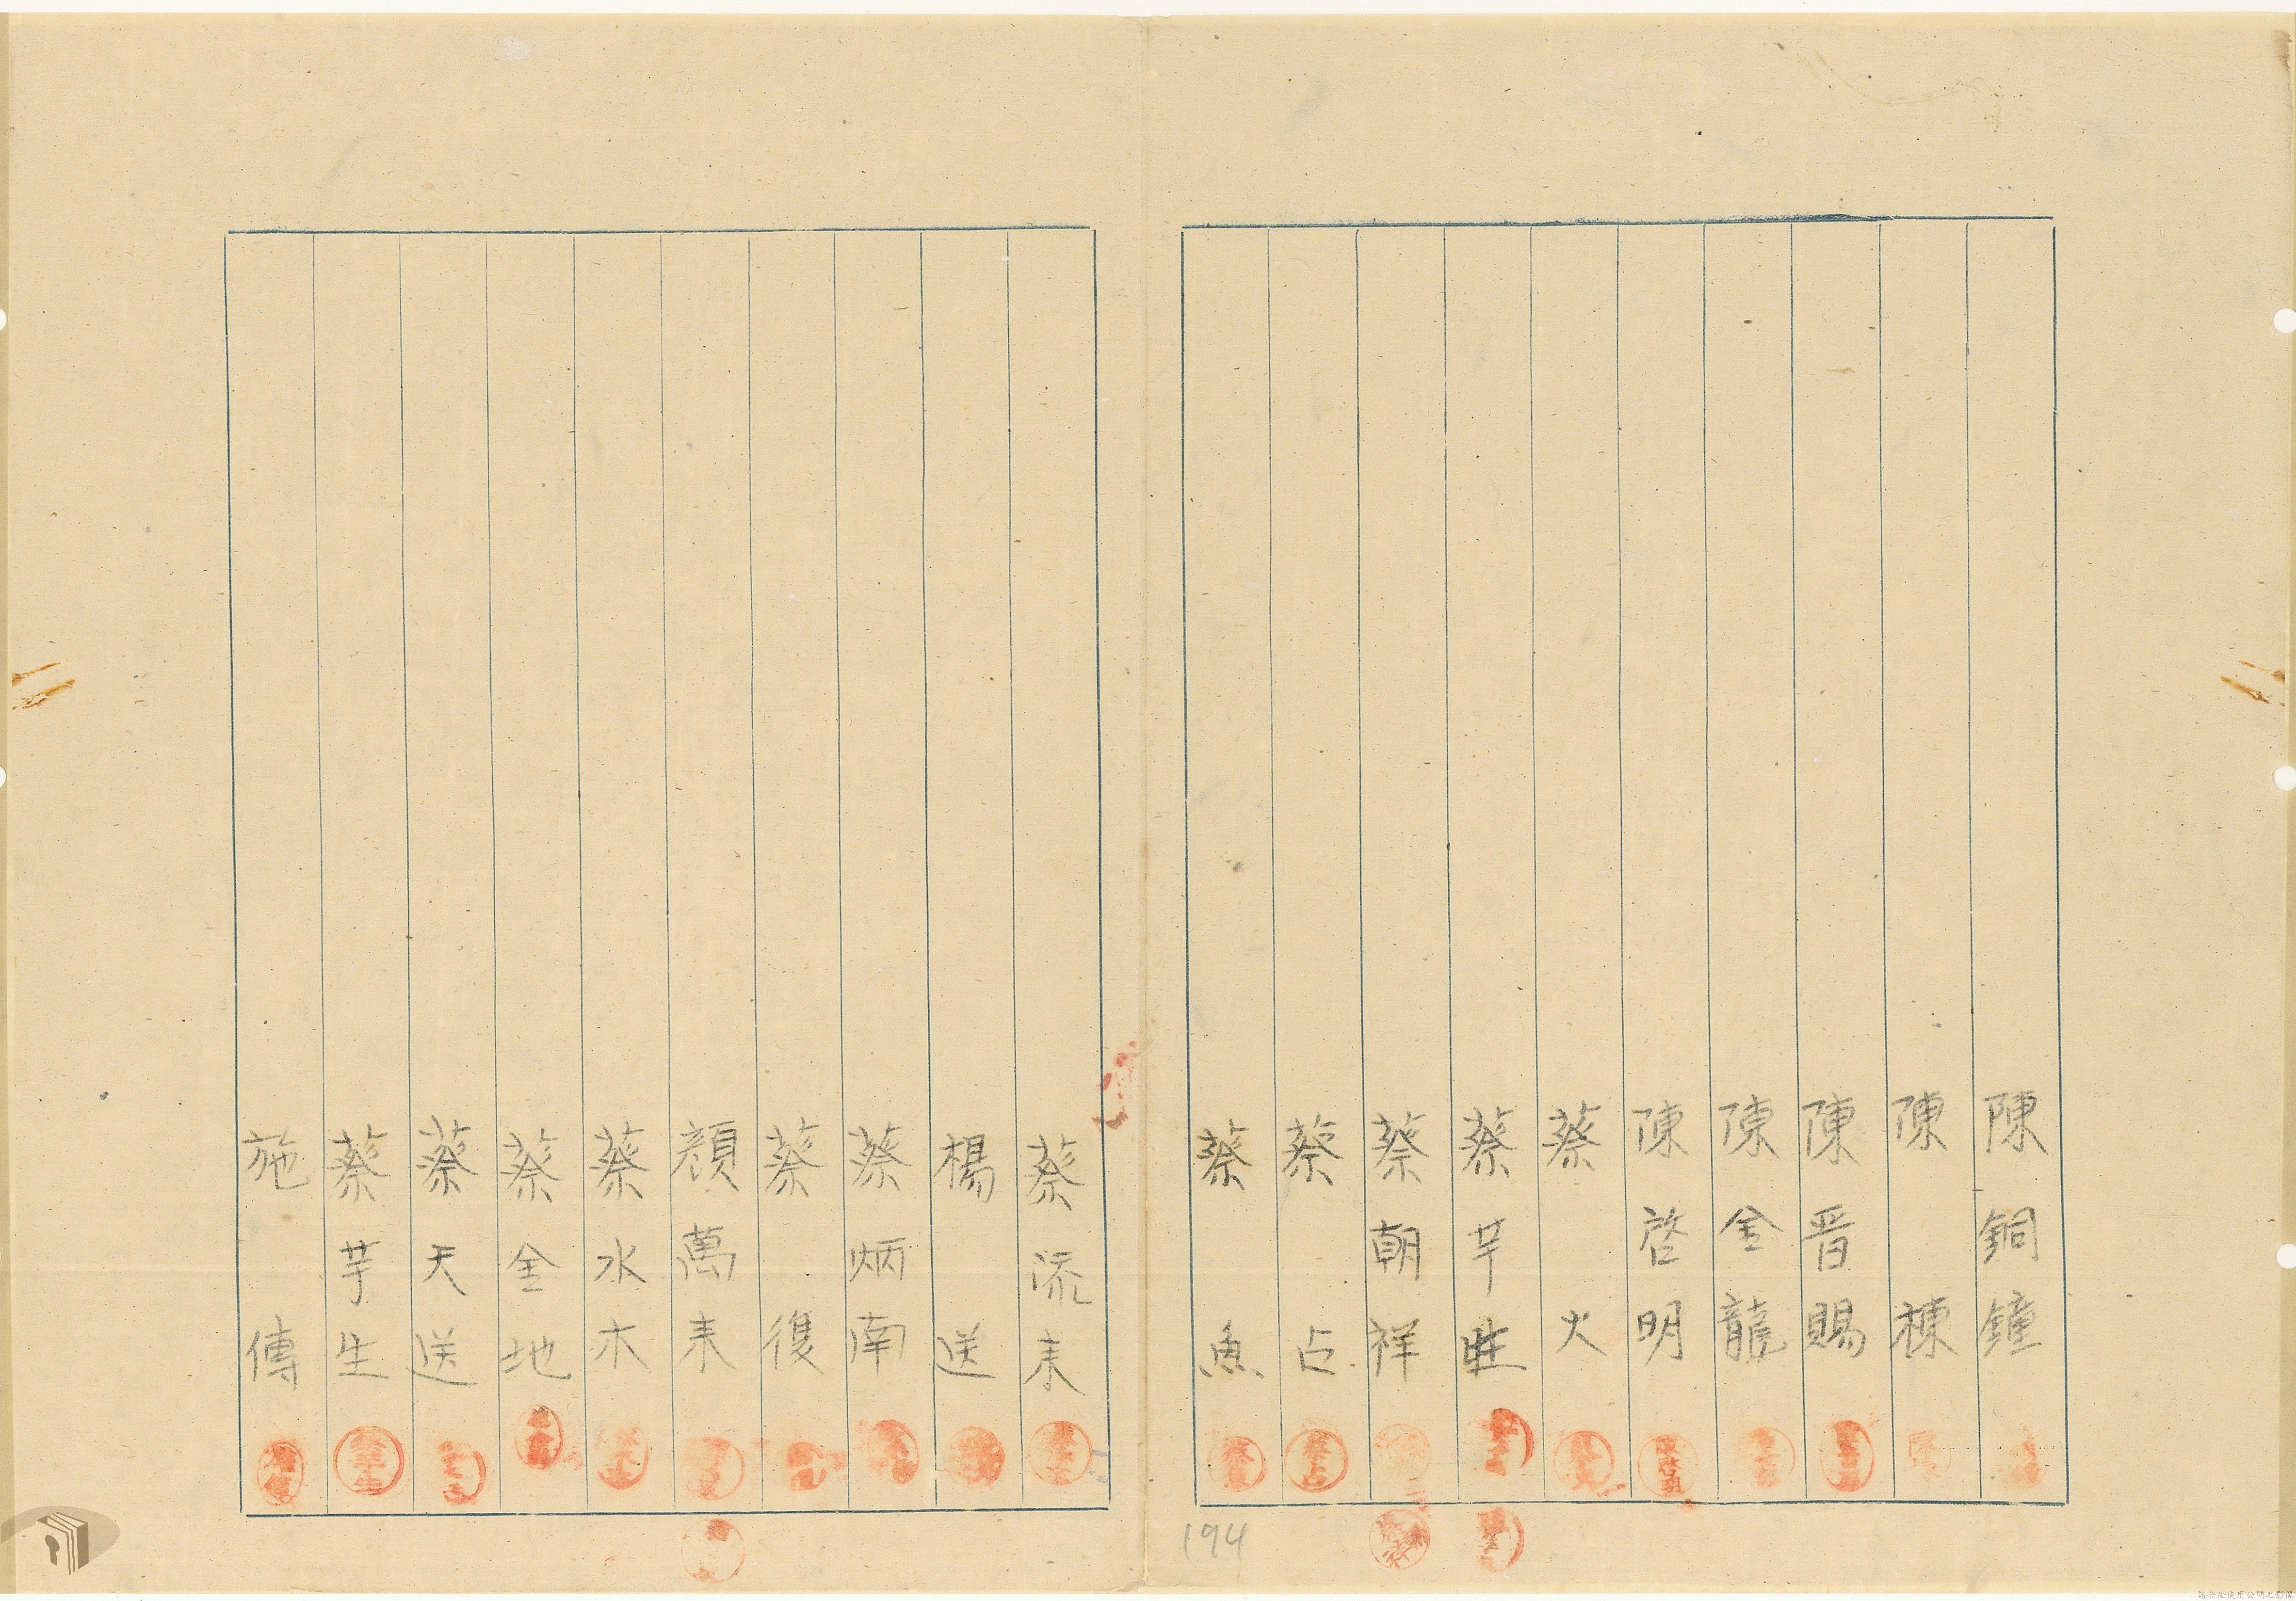 陳銅鐘
陳棟
陳晋賜
陳金龍
陳啓明
蔡火
蔡芊旺
蔡朝祥
蔡占
蔡魚
194
蔡流来
楊送
蔡炳南
蔡復
顏萬来
蔡水木
蔡金地
蔡天送
蔡芋生
施傳
請合法使用公開之影像